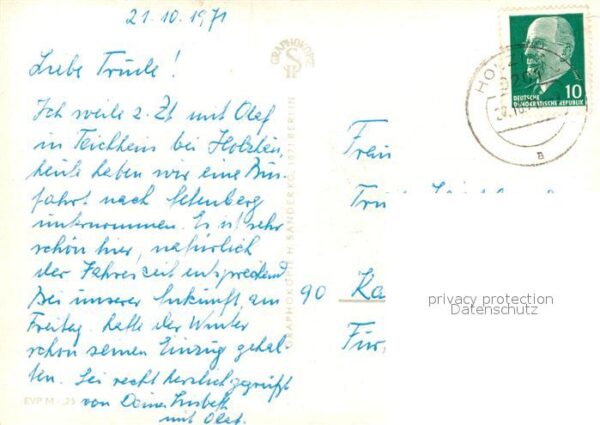 21.10.1971
Liebe Trude!
Ich weile z. Zt. mit Olaf
in Teichheim bei Holzhau
heute haben wir eine Bus-
fahrt nach
unternommen. Es ist sehr
schön hier, natürlich
der Jahreszeit entsprechend
Bei unserer Ankunft, am
Freitag hatte der Winter
schon seinen Einzug gehal-
ten. Sei recht herzlich gegrüßt
von Deiner Lisbeth
mit Olaf.
EVP M -,25
GRAPHOKOPIE
GRAPHOKOPIE H. SANDER KG. 1971 BERLIN
HOLZ
DEUTSCHE
DEMOKRATISCHE REPUBLIK
10
a
Frau
Tru
90 Ka
Für
privacy protection
Datenschutz